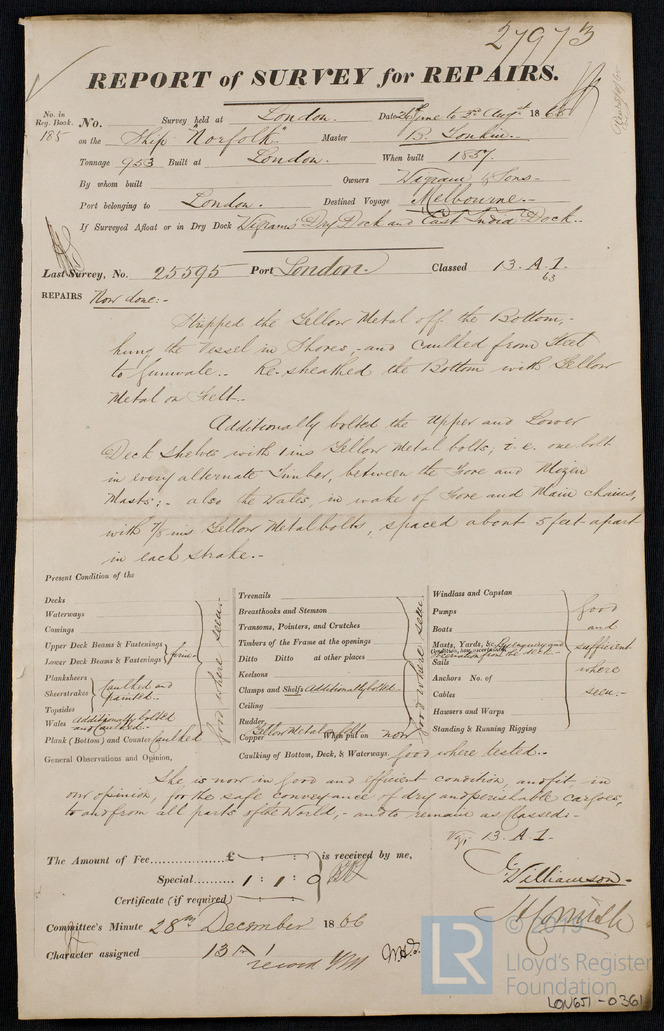 27973
REPORT of SURVEY for REPAIRS.
No. in Reg. Book.
185
No. Survey held at London. Date June to 3rd Augst 1866
on the Ship "Norfolk" Master B. Tonkin.
Tonnage 953 Built at London. When built 1857.
By whom built Owners Wigram & Sons-
Port belonging to London. Destined Voyage Melbourne.-
If Surveyed Afloat or in Dry Dock Wigrams Dry Dock and East India Dock.
Last Survey, No. 25595 Port London. Classed 13. A. 1.
63
REPAIRS Now done:-
Stripped the Yellow Metal off the Bottom,-
hung the Vessel in Shores,- and Caulked from Keel
to Gunwale.- Re-sheathed the Bottom with Yellow
Metal on Felt.-
Additionally bolted the Upper and Lower
Deck Shelves with 1 ins Yellow Metal bolts; i.e. one bolt
in every alternate Timber, between the Fore and Mizen
Masts;- also the Wales, in wake of Fore and Main Chains,
with 7/8 ins Yellow Metal bolts, spaced about 5 feet apart
in each strake.-
Present Condition of the
Decks
Waterways
Comings
Upper Deck Beams & Fastenings
Lower Deck Beams & Fastenings firm-
Planksheers
Sheerstrakes caulked and painted.-
Topsides
Wales additionally bolted and Caulked.-
Plank (Bottom) and Counter Caulked
good where seen.-
Treenails
Breasthooks and Stemson
Transoms, Pointers, and Crutches
Timbers of the Frame at the openings
Ditto Ditto at other places
Keelsons
Clamps and Shelfs Additionally bolted-
Ceiling
Rudder
Copper Yellow Metal on felt When put on now
good where seen.
Caulking of Bottom, Deck, & Waterways. good where tested.-
Windlass and Capstan
Pumps
Boats
Masts, Yards, &c.
Sails
Anchors No. of
Cables
Hawsers and Warps
Standing & Running Rigging
good and sufficient where seen:-
General Observations and Opinion,
She is now in good and efficient condition, and fit, in
our opinion, for the safe conveyance of dry and perishable cargoes,
to and from all parts of the World,- and to remain as Classed:-
Viz: 13. A. 1.
The Amount of Fee £ is received by me,
Special 1 : 1 : 0
Certificate (if required)
J Williamson-
H Cornish
Committee's Minute 28th December 1866
Character assigned 13 A 1
record YM
© 2019
LR
Lloyd's Register
Foundation
LON651-0361